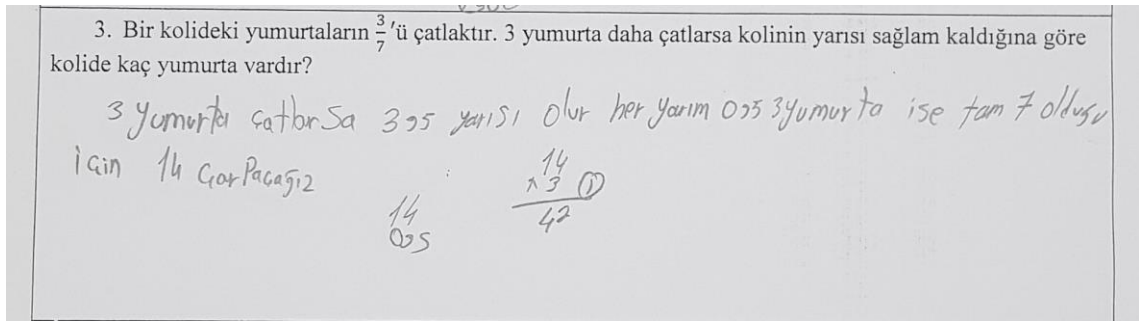 3. Bir kolideki yumurtaların 3/7'ü çatlaktır. 3 yumurta daha çatlarsa kolinin yarısı sağlam kaldığına göre
kolide kaç yumurta vardır?
3 yumurta çatlarsa 3,5 yarısı olur her yarım 0,5 3 yumurta ise tam 7 olduğu
için 14 çarpacağız
14
x 3 ①
42
14
0,5